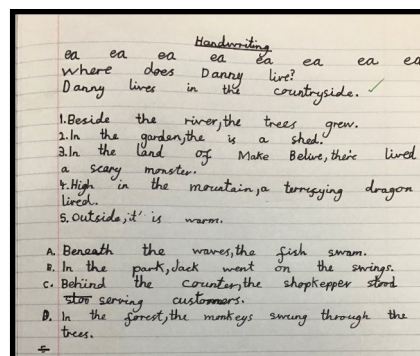 Handwriting
ea ea ea ea ea ea ea ea
Where does Danny live?
Danny lives in the countryside.
1.Beside the river,the trees grew.
2.In the garden,the is a shed.
3.In the land of Make Belive,there lived
a scary monster.
4.High in the mountain,a terrifying dragon
lived.
5.Outside,it' is warm.
A. Beneath the waves,the fish swam.
B. In the park,Jack went on the swings.
C. Behind the counter,the shopkepper stood
stoo serving customers.
D. In the forest,the monkeys swung through the
trees.